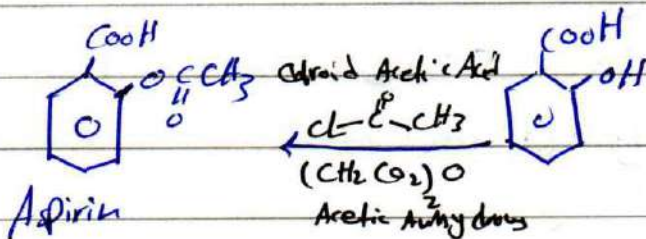 COOH
O C CH3
O
O
Aspirin
Cloroid Acetic Acid
O
Cl - C - CH3
(CH2 CO2)2 O
Acetic Anhydrous
COOH
OH